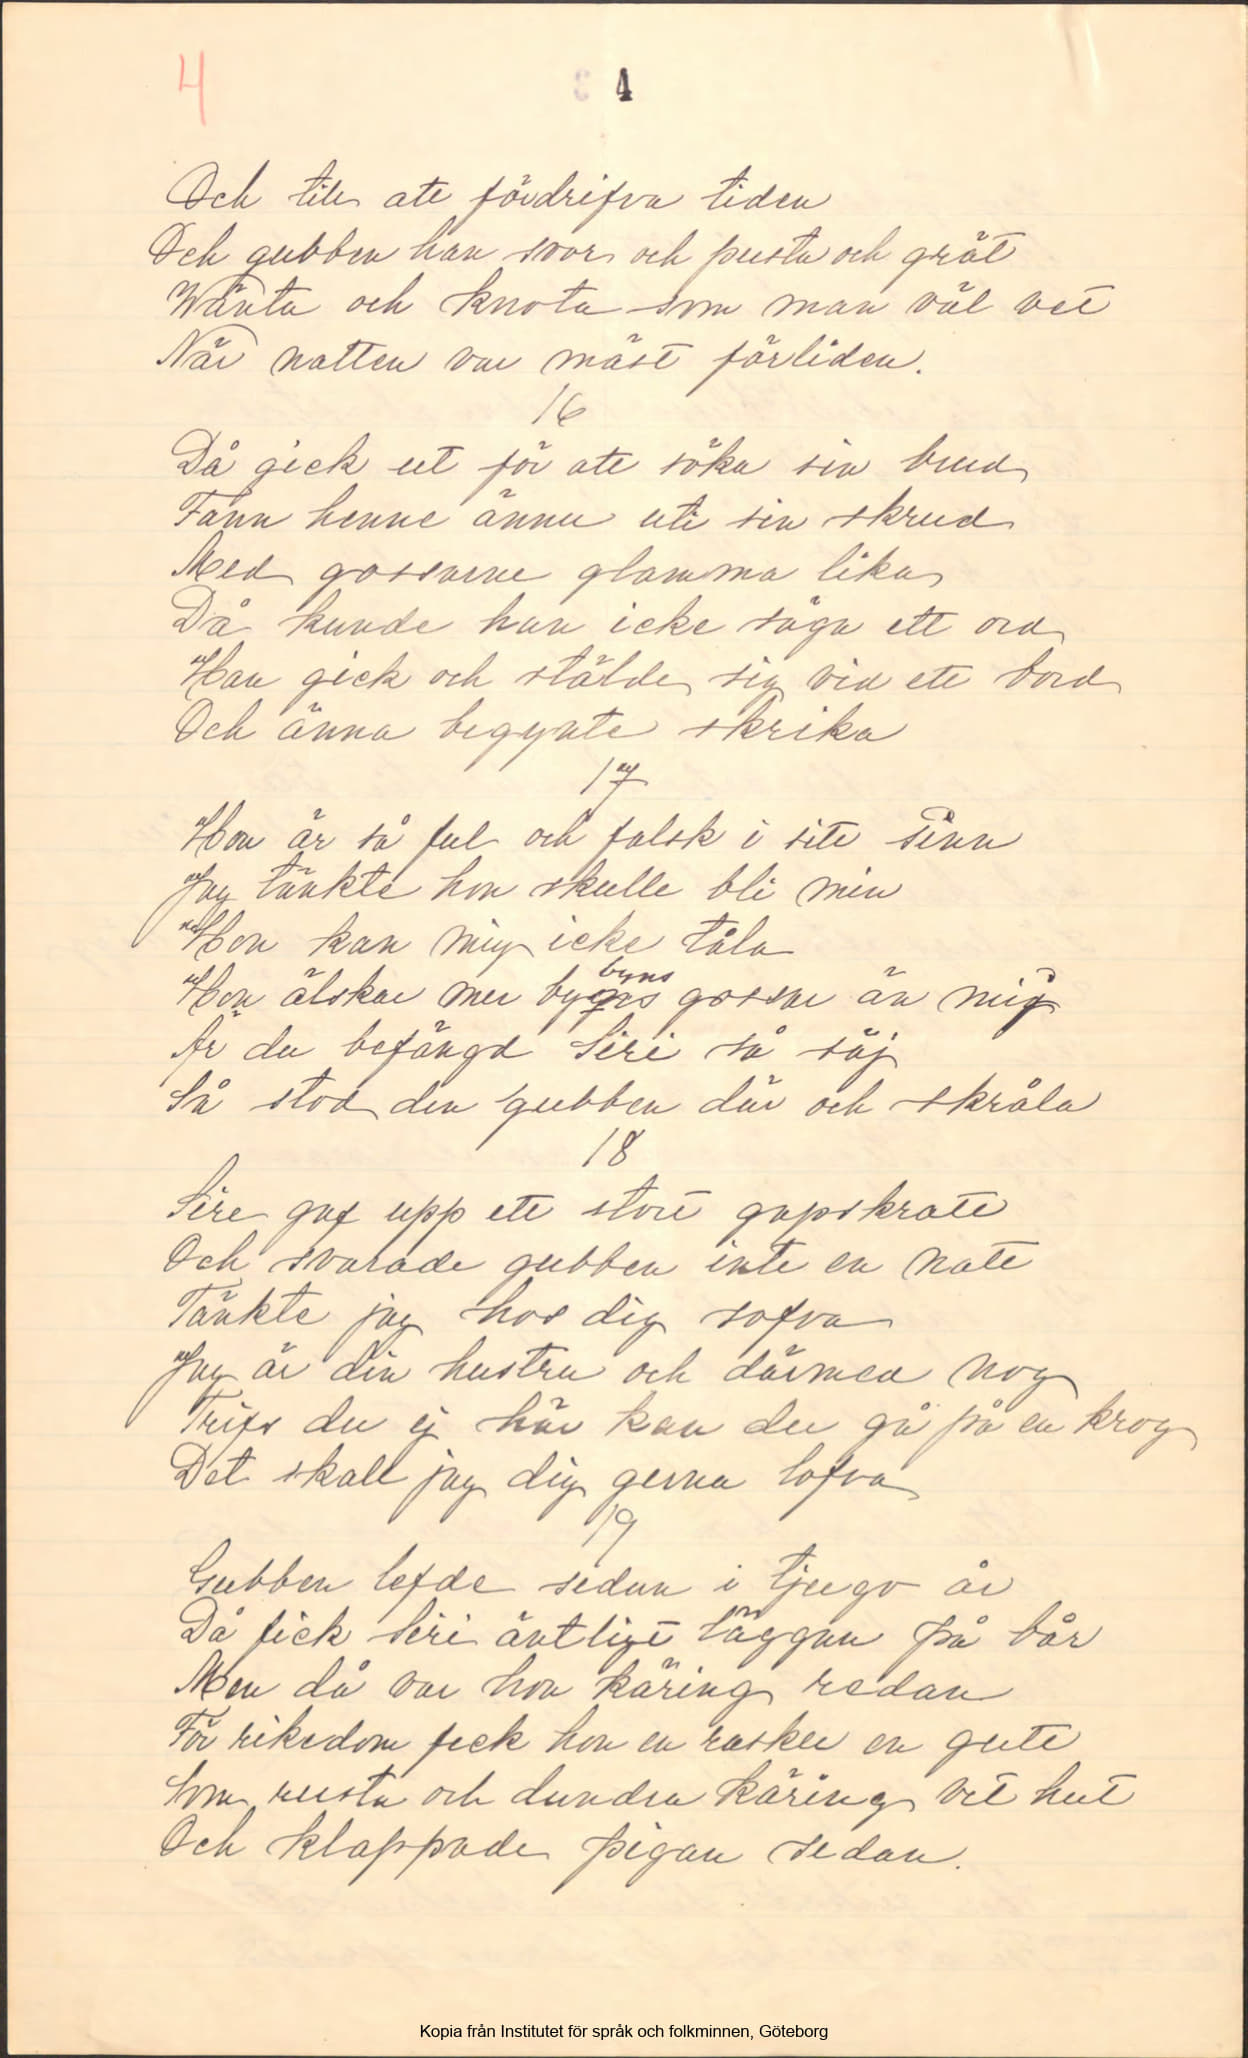 4
3 4
Och till att fördrifva tiden
Och gubben han svor och pusta och grät
Wänta och knota som man väl vet
När natten var mäst förliden.
16
Då gick ut för att söka sin brud
Fann henne ännu uti sin skrud
Med gossarne glamma lika
Då kunde han icke säga ett ord
Han gick och stälde sig vid ett bord
Och änna begynte skrika
17
Hon är så ful och falsk i sitt sinn
Jag tänkte hon skulle bli min
Hon kan mig icke tåla
byns
Hon älskar mer bygns gossar än mig
Är du befängd Siri så säj
Så stod den gubben där och skråla
18
Sire gaf upp ett stort gapskratt
Och svarade gubben inte en natt
Tänkte jag hos dig sofva
Jag är din hustru och därmed nog
Trifs du ej här kan du gå på en krog
Det skall jag dig gerna lofva
19
Gubben lefde sedan i tjugo år
Då fick Siri äntligt läggan på bår
Men då var hon käring redan
För rikedom feck hon en rasker en gutt
Som rusta och dundra käring vet hut
Och klappade pigan sedan.
Kopia från Institutet för språk och folkminnen, Göteborg